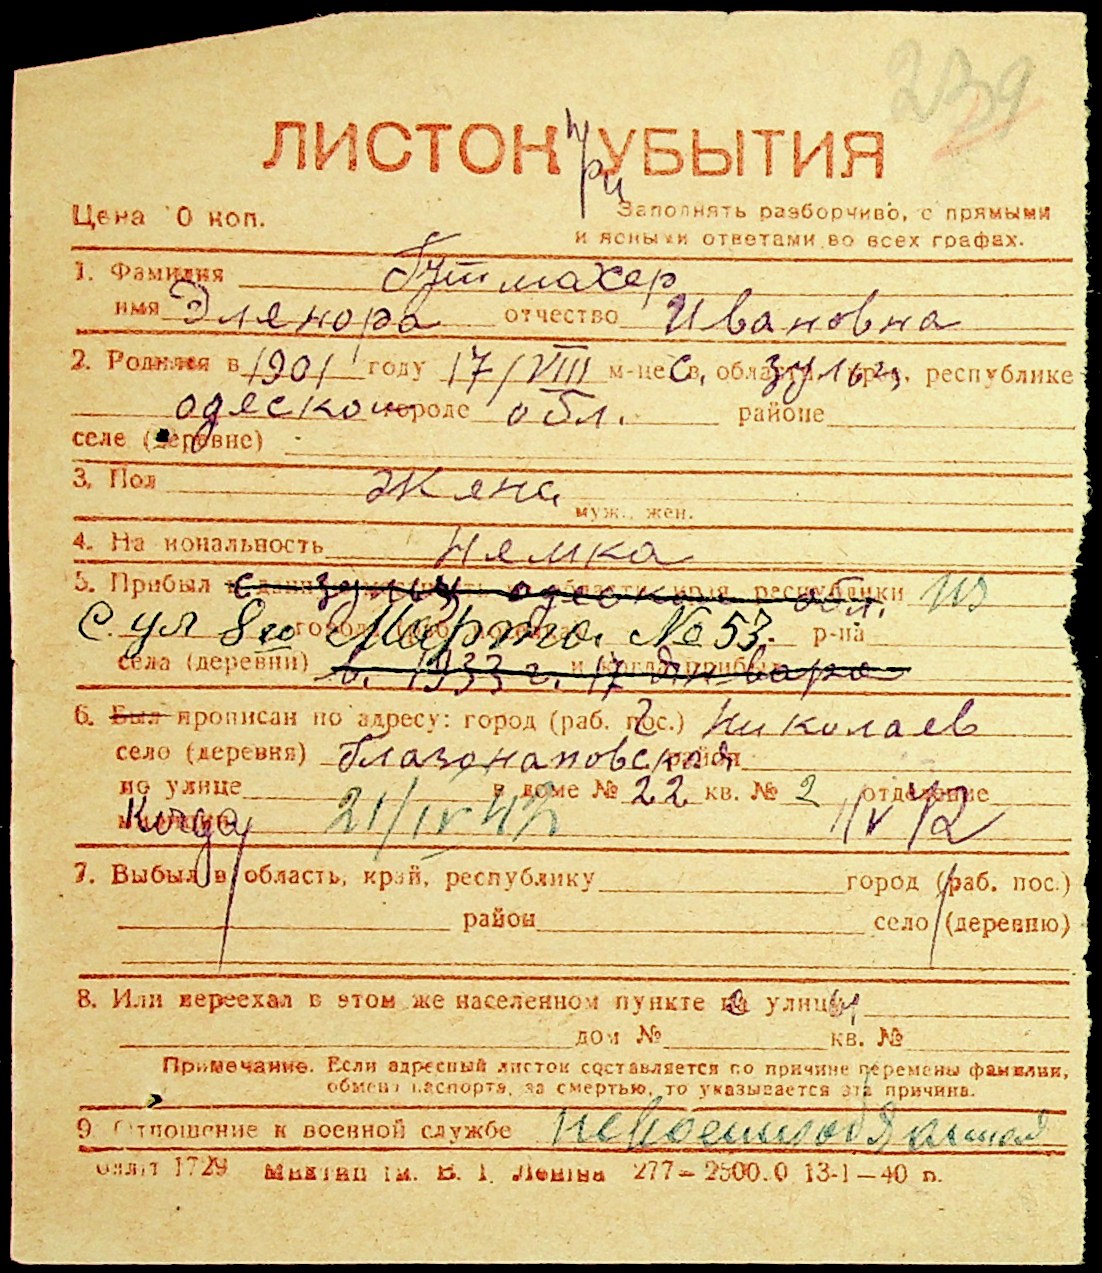 239
ЛИСТОК при УБЫТИЯ
Цена 10 коп. Заполнять разборчиво, с прямыми
и ясными ответами во всех графах.
1. Фамилия Гутмахер
имя Элянора отчество Ивановна
2. Родился в 1901 году 17/VIII м-це в с. области, зульц, республике
одеской городе обл. районе
селе (деревне)
3. Пол жена
муж., жен.
4. Национальность нямка
5. Прибыл с зульц одеской обл. республики из
с. ул 8го Марта № 53. р-на
села (деревни) в. 1933 г. 17 января
6. Был прописан по адресу: город (раб. пос.) г Николаев
село (деревня) район
по улице в доме № 22 кв. № 2 отделение
милиции Когда 21/IV 42 1/V/42
7. Выбыл в область, край, республику город (раб. пос.)
район село (деревню)
8. Или переехал в этом же населенном пункте на улицу
дом № кв. №
Примечание. Если адресный листок составляется по причине перемены фамилии,
обмена паспорта, за смертью, то указывается эта причина.
9. Отношение к военной службе невоеннообязаная
1729 им. В. І. Леніна 277—2500.0 13-1—40 р.